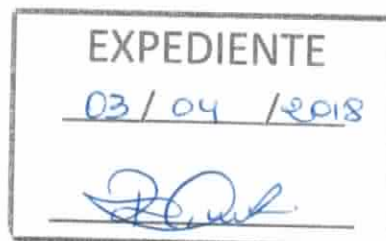 EXPEDIENTE
03 / 04 / 2018